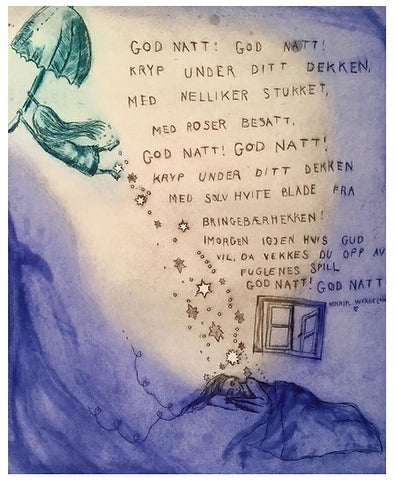 GOD NATT! GOD NATT!
KRYP UNDER DITT DEKKEN,
MED NELLIKER STUKKET,
MED ROSER BESATT.
GOD NATT! GOD NATT!
KRYP UNDER DITT DEKKEN
MED SØLVHVITE BLADE FRA
BRINGEBÆRHEKKEN!
IMORGEN IGJEN HVIS GUD
VIL, DA VEKKES DU OPP AV
FUGLENES SPILL
GOD NATT! GOD NATT
HENRIK WERGELAND